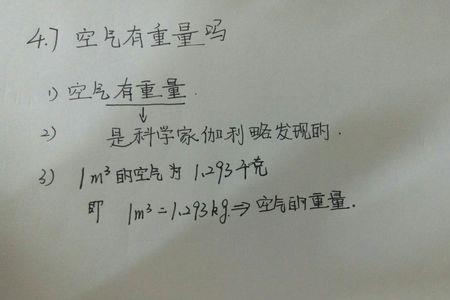 4.7 空气有重量吗
1) 空气有重量.
↓
2) 是科学家伽利略发现的.
3) 1m³的空气为1.293千克
即 1m³=1.293kg.⇒空气的重量.